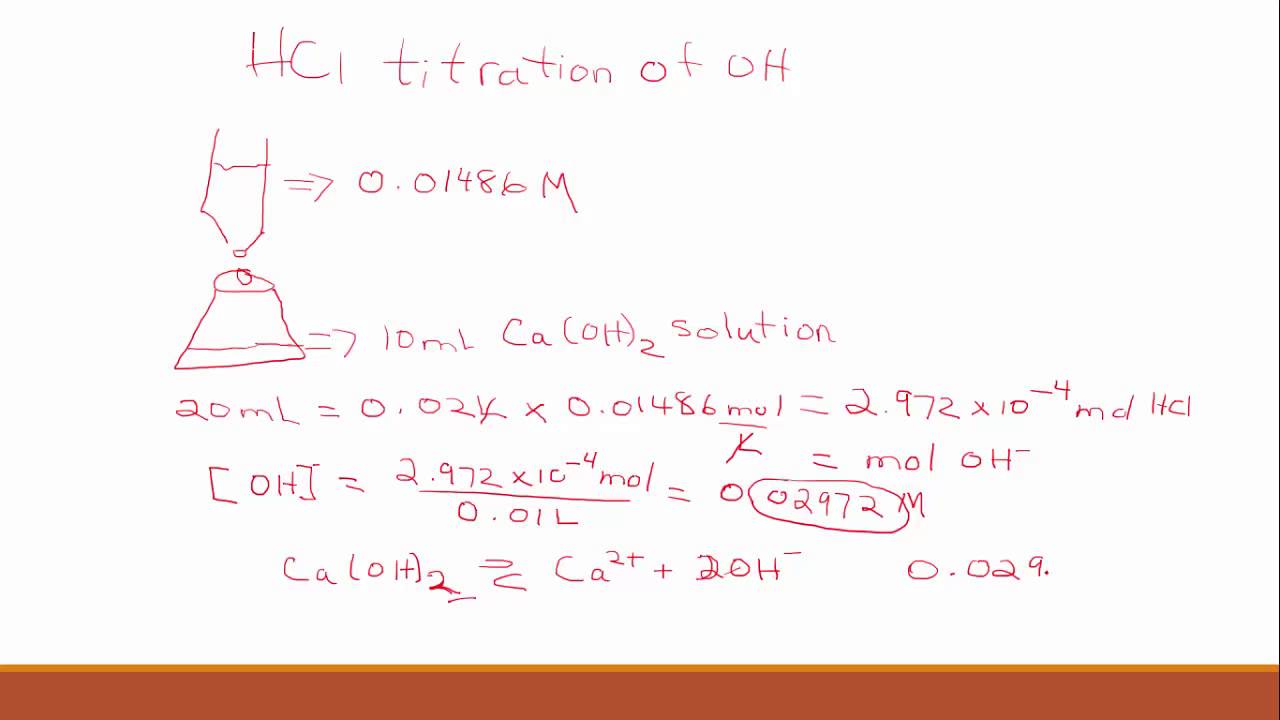 HCl titration of OH
⇒ 0.01486 M
⇒ 10mL Ca(OH)₂ solution
20mL = 0.02L × 0.01486 mol/L = 2.972×10⁻⁴ mol HCl
= mol OH⁻
[OH⁻] = 2.972×10⁻⁴ mol / 0.01L = 0.02972 M
Ca(OH)₂ ⇌ Ca²⁺ + 2OH⁻ 0.029.